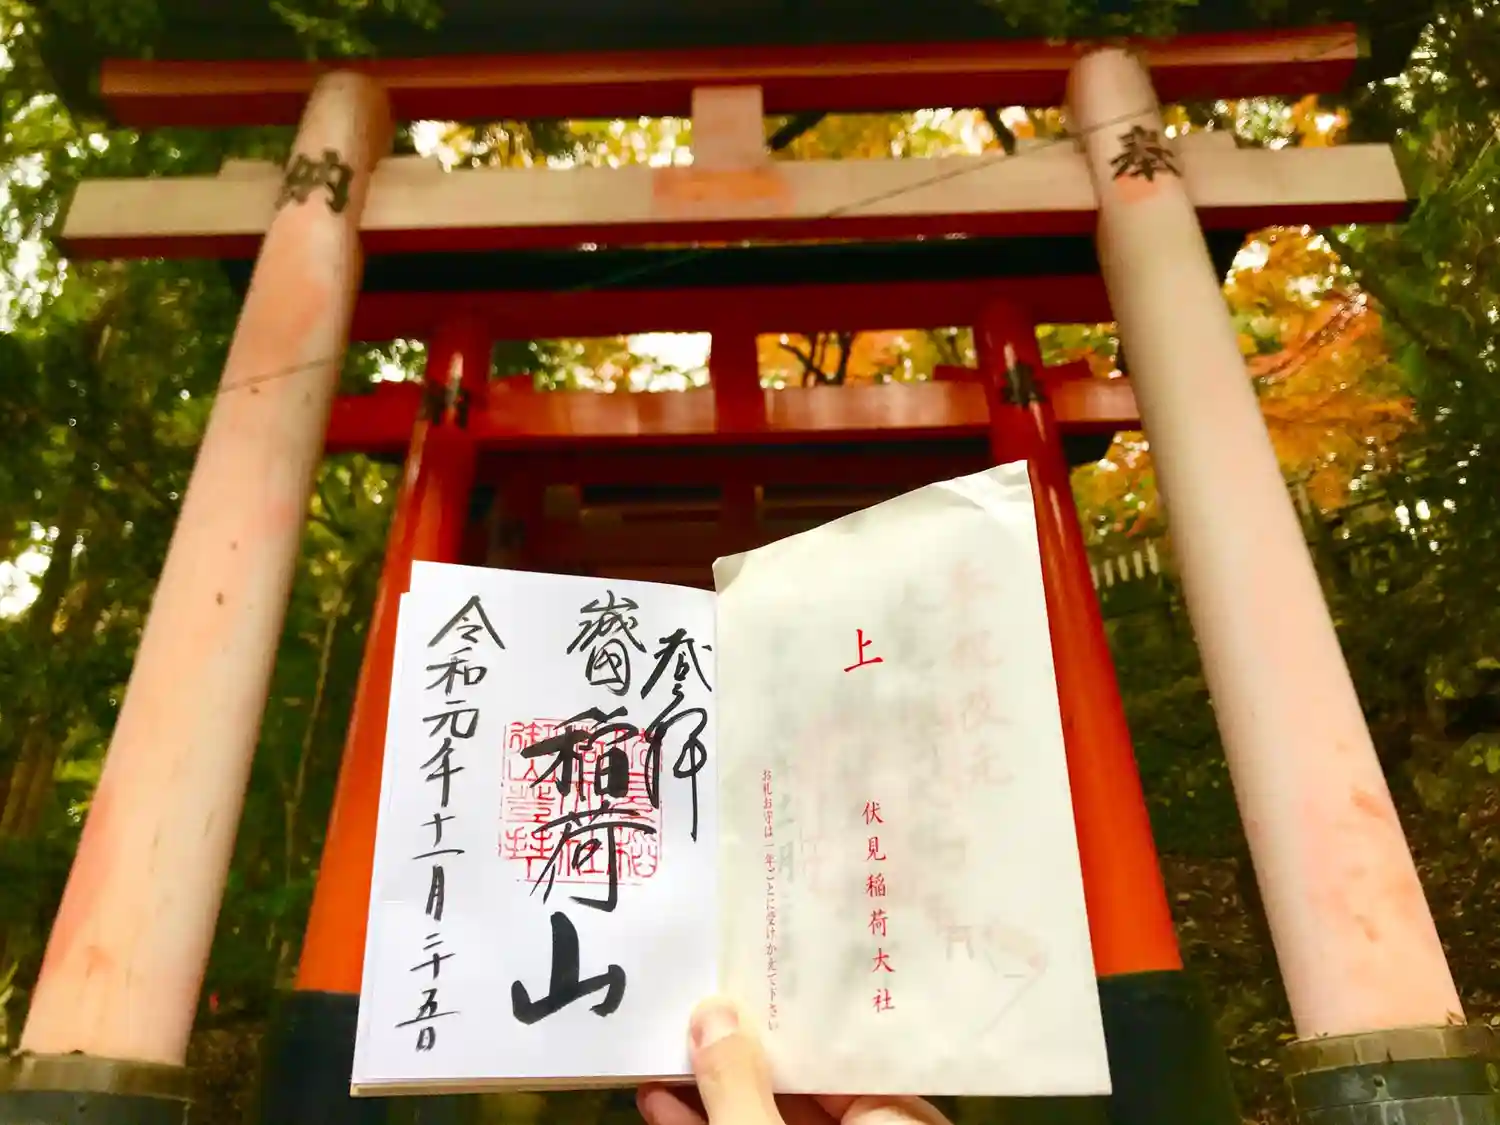 奉
納
登拝
稲荷山
令和元年十一月二十五日
上
伏見稲荷大社
お札お守は一年ごとに受けかえて下さい